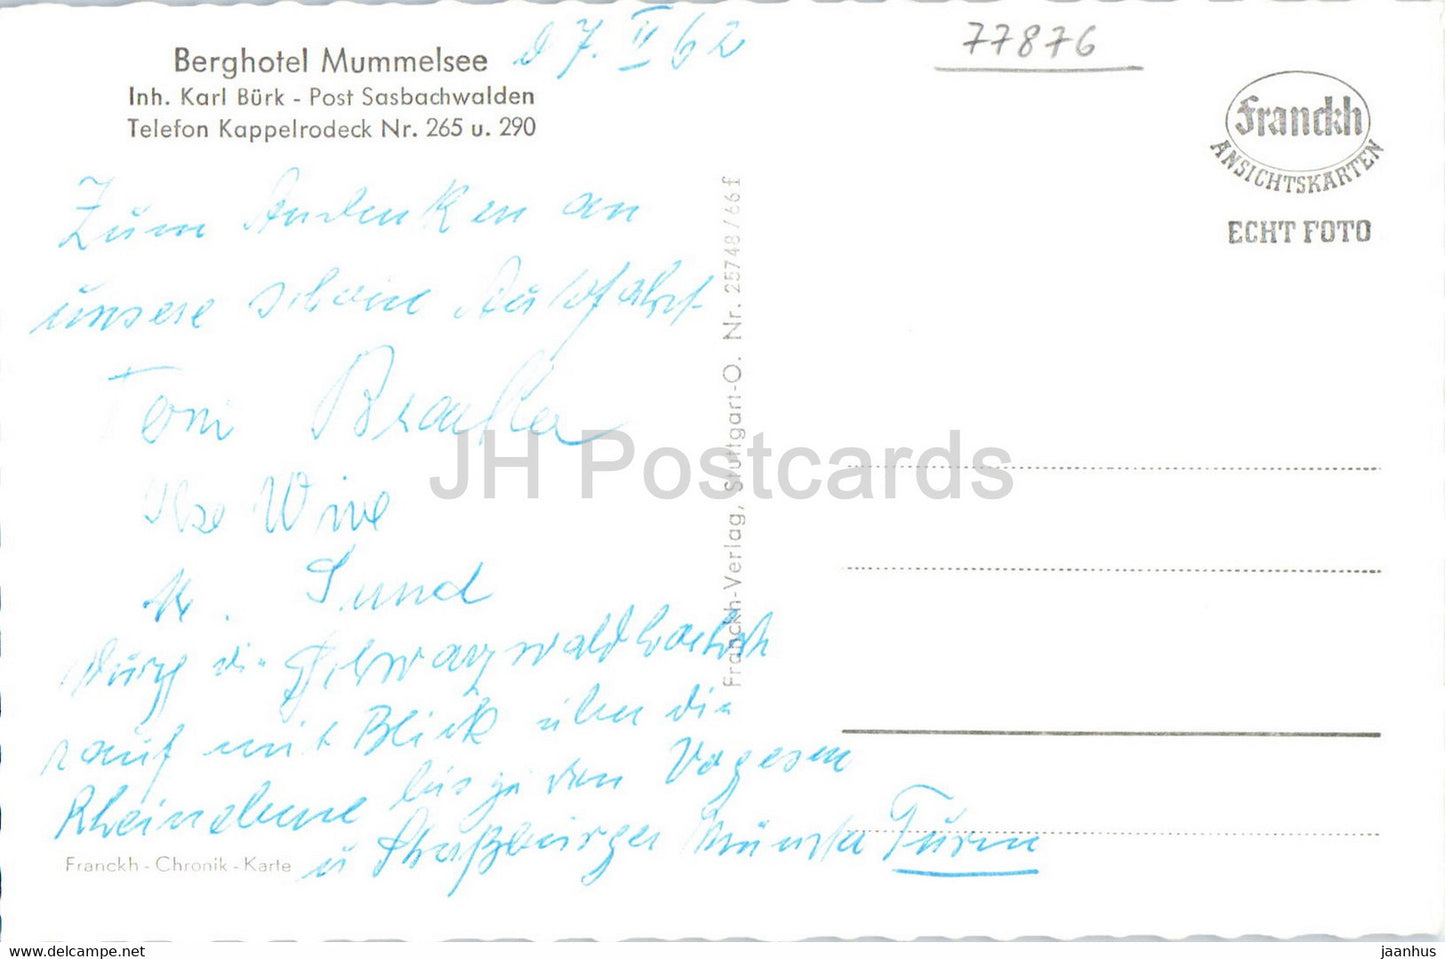 Berghotel Mummelsee
Inh. Karl Bürk - Post Sasbachwalden
Telefon Kappelrodeck Nr. 265 u. 290
d 7. II 62
77876
Franckh
ANSICHTSKARTEN
ECHT FOTO
Zum Andenken an
unsere schöne Autofahrt
Toni
Ilse
K. Sund
Schwarzwaldhochstr
rauf mit Blick über die
Rheinebene bis zu den Vogesen
u Straßburger Münster Turm
Franckh-Verlag, Stuttgart-O. Nr. 25748/66f
Franckh - Chronik - Karte
JH Postcards
www.delcampe.net
jaanhus